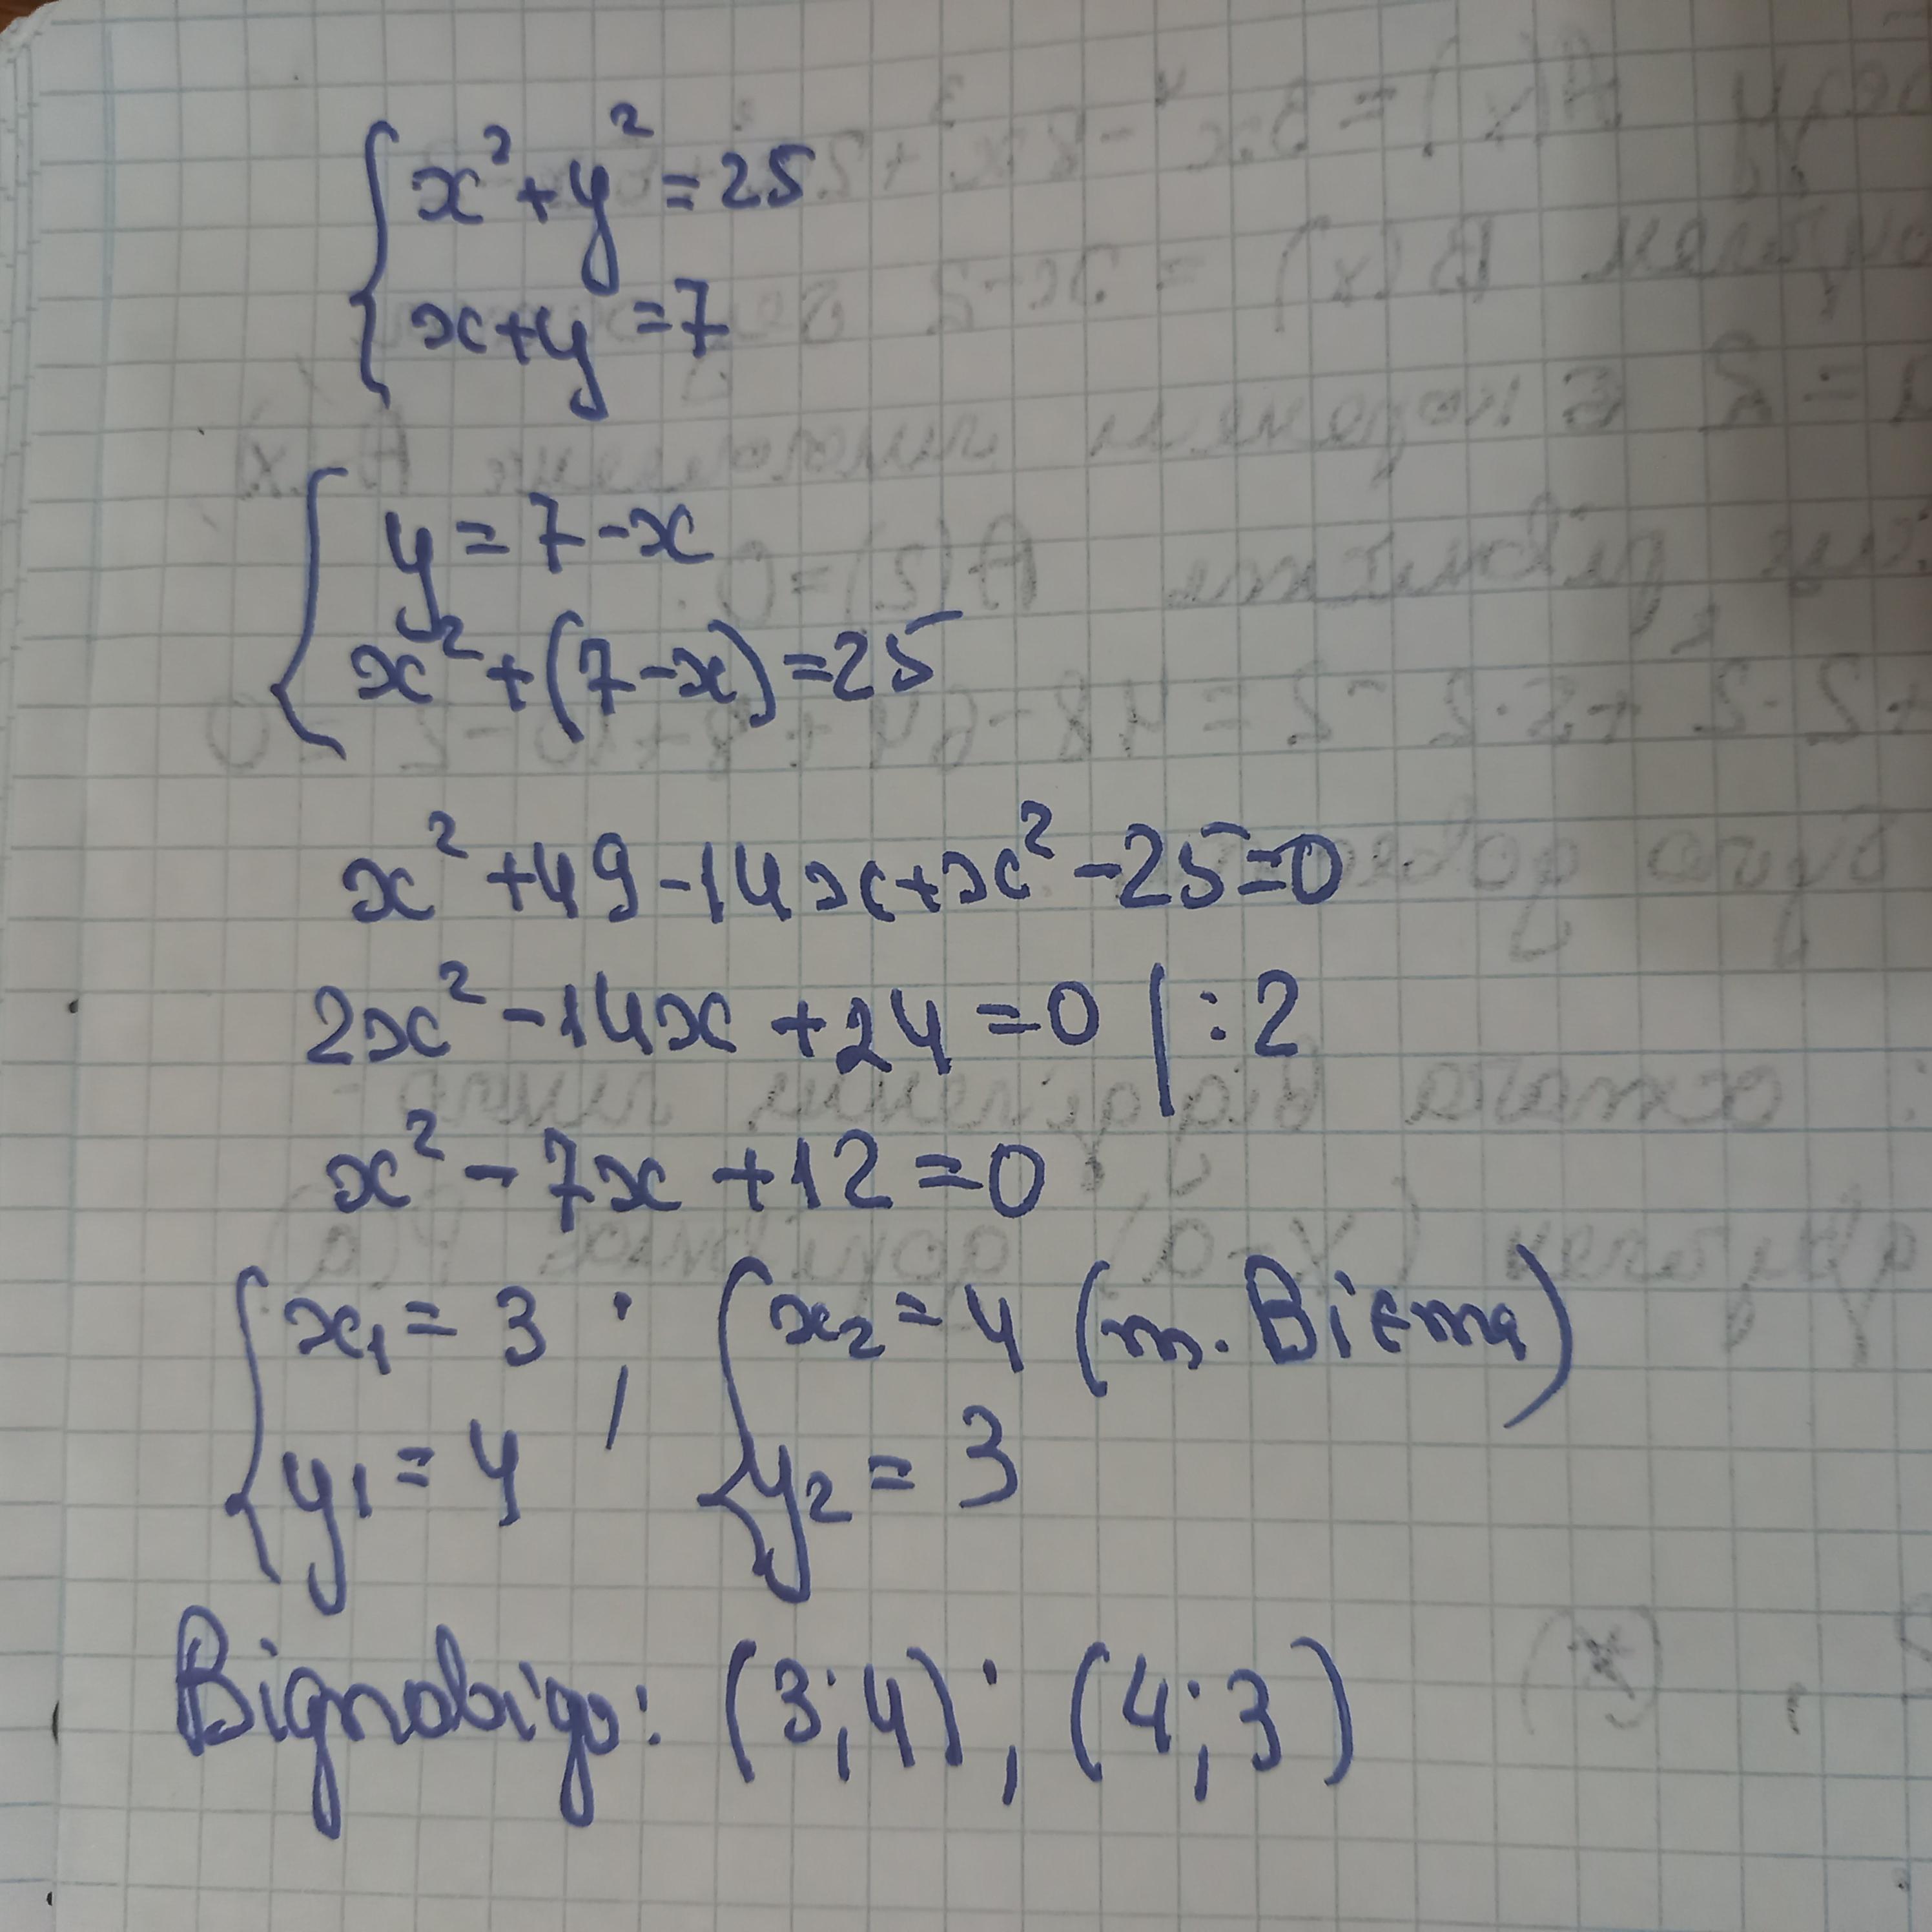 { x² + y² = 25
x + y = 7
{ y = 7 - x
x² + (7 - x) = 25
x² + 49 - 14x + x² - 25 = 0
2x² - 14x + 24 = 0 | : 2
x² - 7x + 12 = 0
{ x₁ = 3 ; { x₂ = 4 (т. Вієта)
y₁ = 4 y₂ = 3
Відповідь: (3; 4); (4; 3)